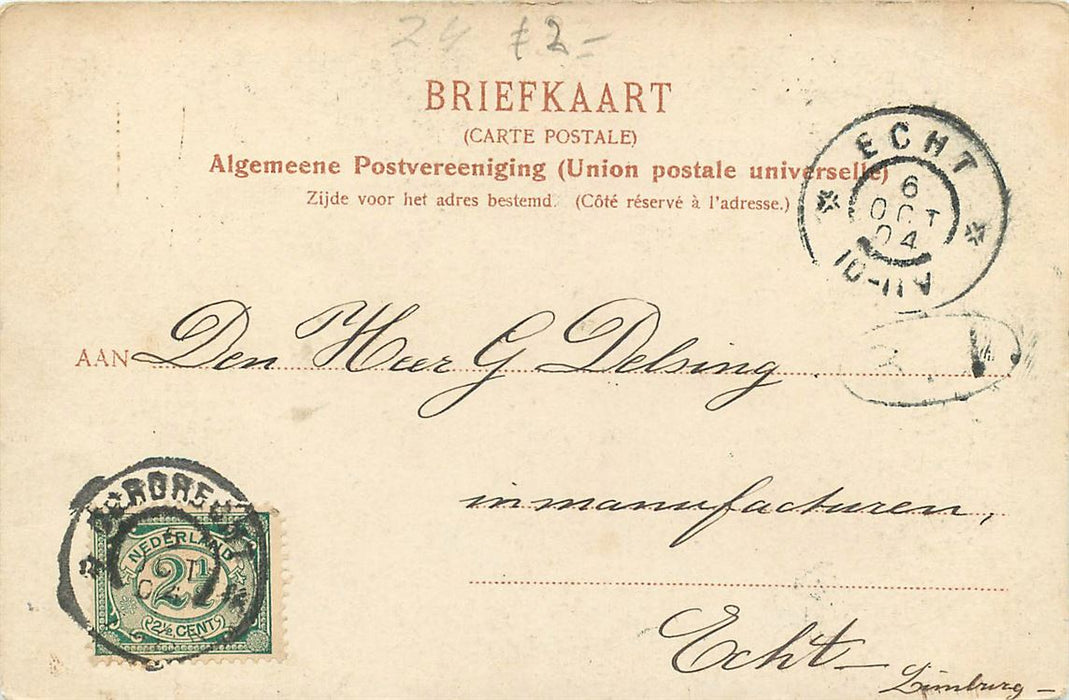 24 £2-
BRIEFKAART
(CARTE POSTALE)
Algemeene Postvereeniging (Union postale universelle)
Zijde voor het adres bestemd. (Côté réservé à l'adresse.)
ECHT
6
OCT
04
10-11V
AAN Den Heer G Delsing
in manufacturen,
Echt-
Limburg-
DORDRECHT
OCT
04
NEDERLAND
2½
2½ CENT